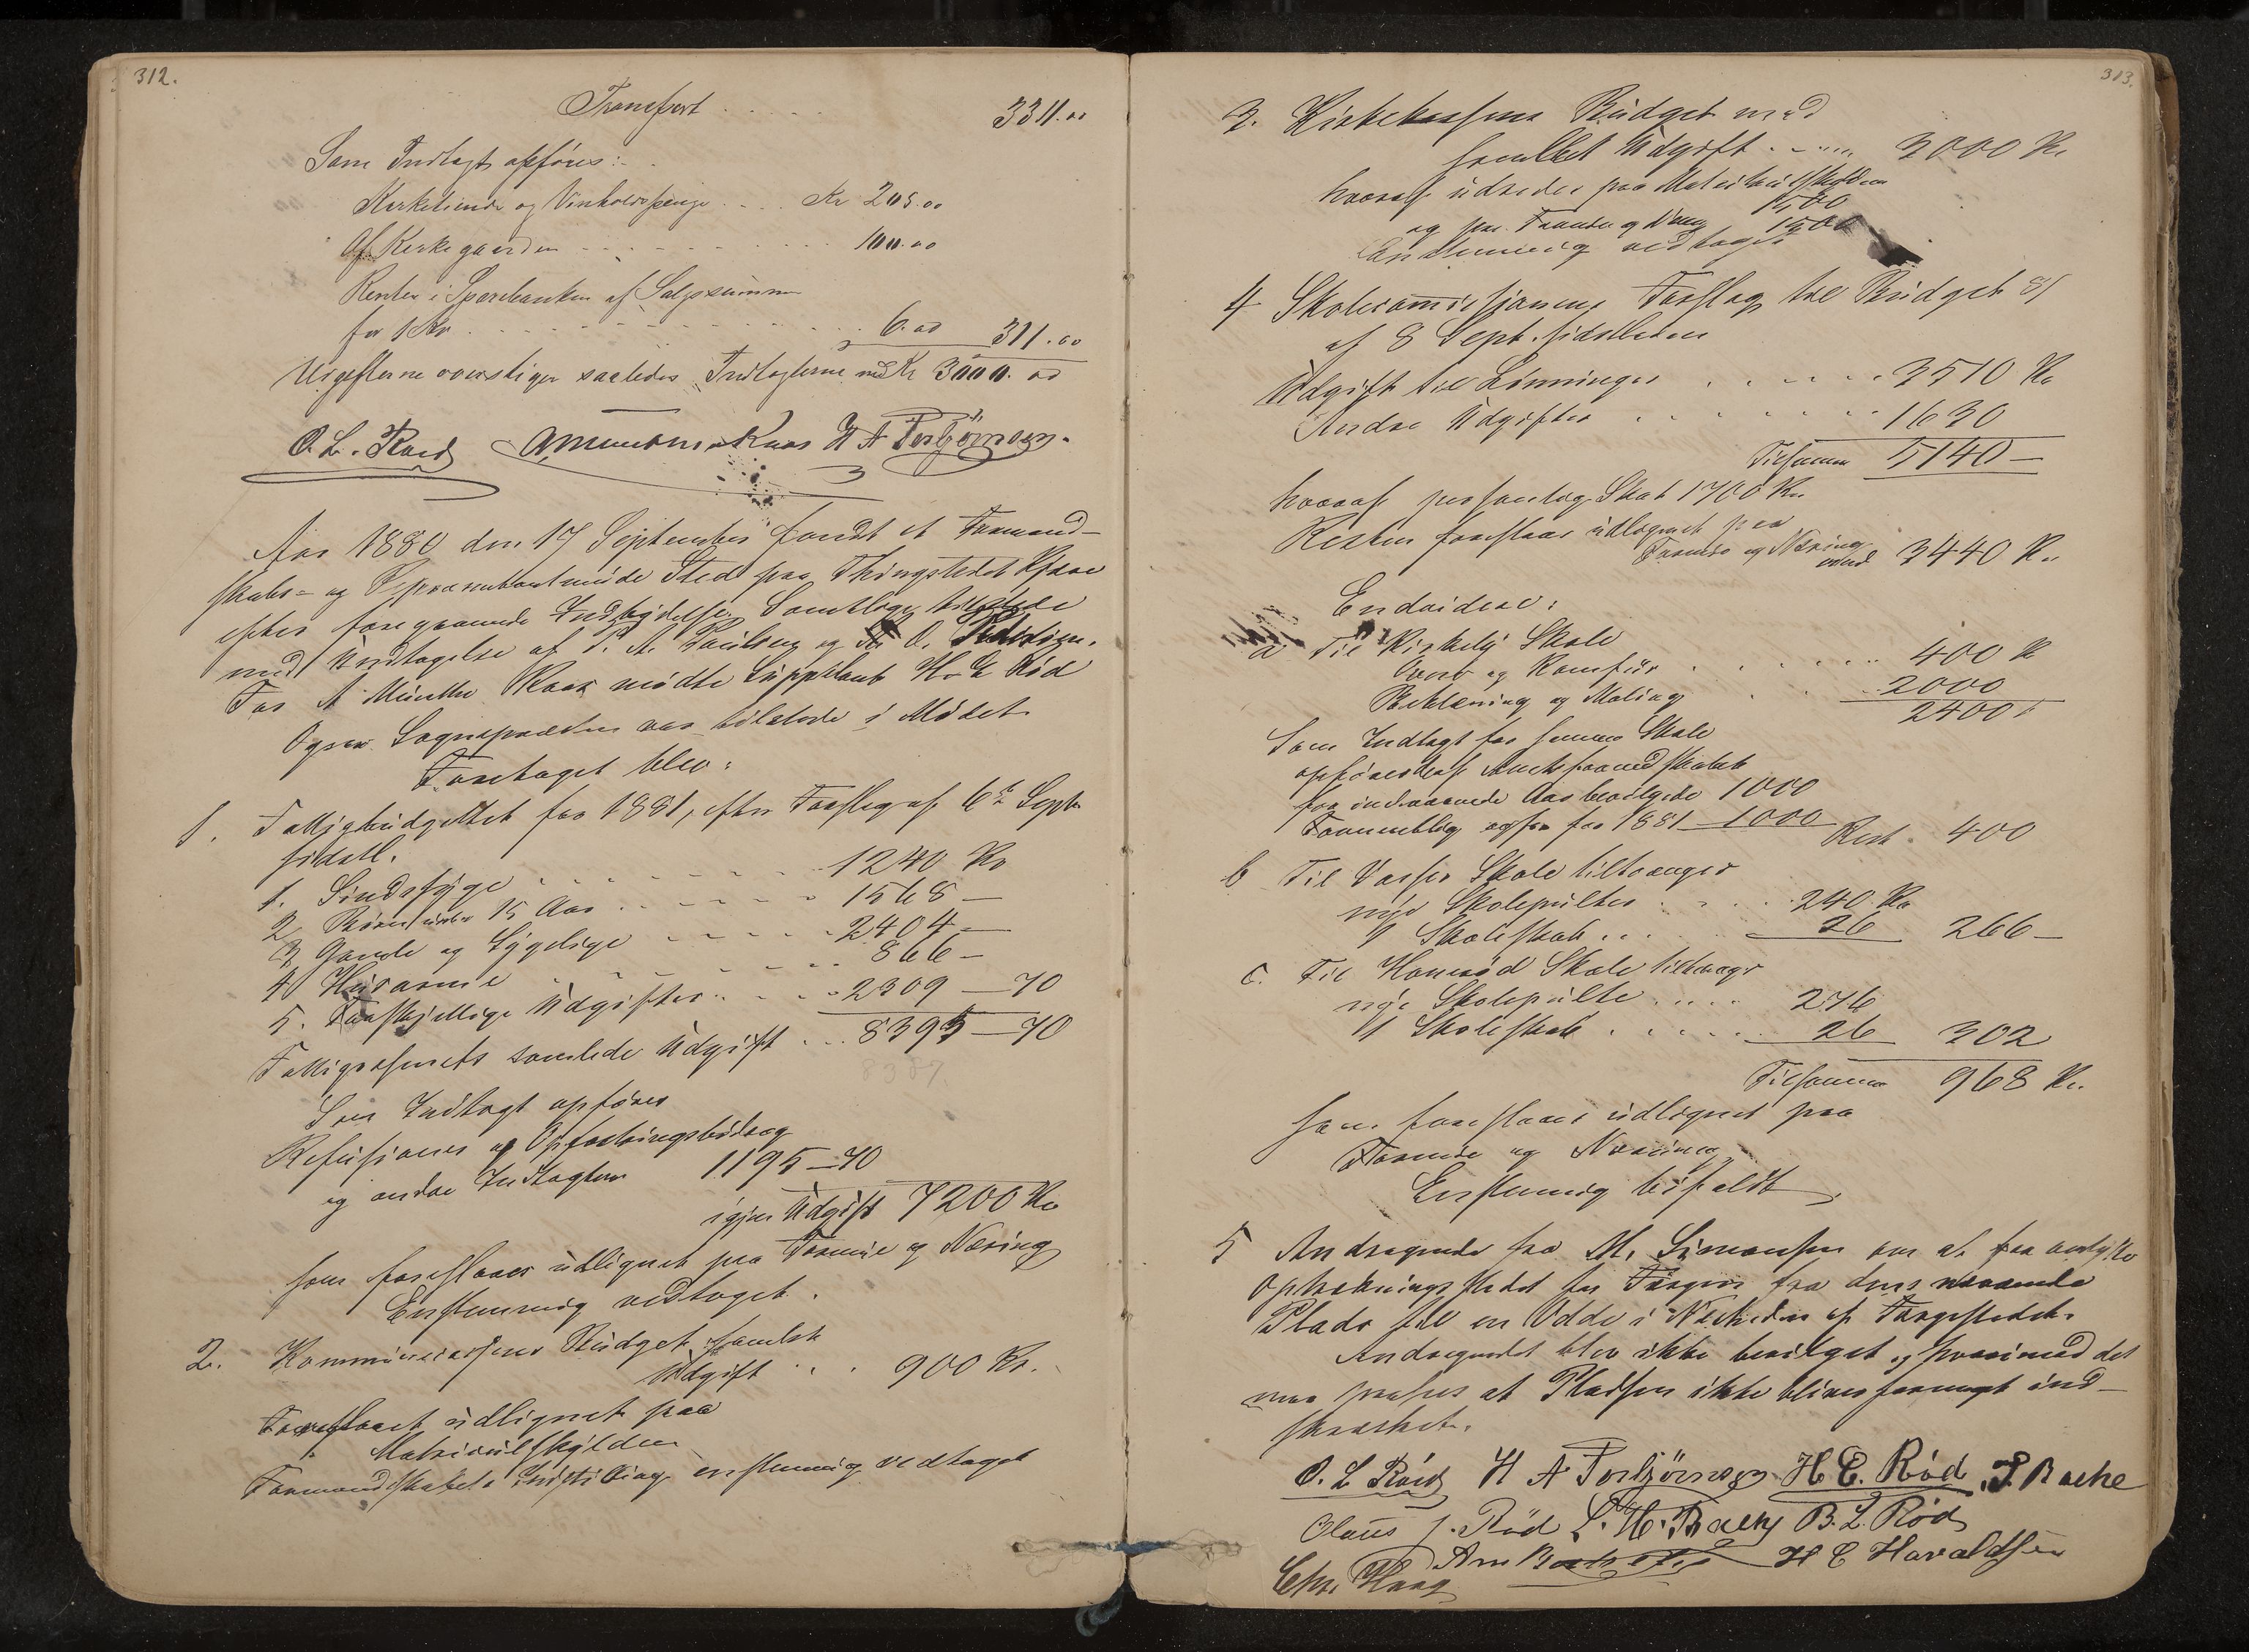 312.
Transport . . . . . 3311.00
Som Indtægt opføres:
Kirketiende og Vinholdspenge . . . . Kr 205.00
Af Kirkegaarden . . . . . . . . 100.00
Renter i Sparebanken af Salgssummen
for 1 Kr . . . . . . . . 6.00 311.00
Utgifterne overstiger saaledes Indtægterne med Kr 3000.00
O. L. Røed H A Torbjörnsen.
Aar 1880 den 17 September holdt et Formand-
skabs- og Repræsentantmøde Sted paa Thingstedet
efter foregaaende Indbydelse. Samtlige tilstede
med Undtagelse af P. A. Paulsen og O.
For A Munthe Kaas mødte Suppleant H. E Rød
Ogsaa Sognepræsten var tilstede i Mødet.
Foretaget blev:
1. Fattigbudgettet for 1881, efter Forslag af 6te Sept.
sidstl.
1. Sindssyge . . . . . . . 1240 Kr
2 Børn under 15 Aar . . . . . . 1568 —
3 Gamle og Sygelige . . . . . 2404 —
4 Husarme . . . . . . 866 —
5. Forskjellige Udgifter . . . . 2309 — 70
Fattigvæsenets samlede Udgift . . . 8395 — 70
8387.
Som Indtægt opføres
Refusioner og Opfostringsbidrag
og andre Indtægter 1195 — 70
igjen Udgift 7200 Kr
som foreslaaes udlignet paa Formue og Næring
Enstemmig vedtaget.
2. Kommunekassens Budget samlet
Udgift . . . 900 Kr.
Foreslaaet udlignet paa
Matrikulskylden
Formandskabets Indstilling enstemmig vedtaget
313.
3. Kirkekassens Budget med
samlet Udgift . . . . . 3000 Kr
hvoraf udredes paa Matrikulskylden
1500
og paa Formue og Næring 1500
Enstemmig vedtaget
4 Skolecommissionens Forslag til Budget 81
af 8 Sept. sidstleden
Udgift til Lønninger . . . . . . 3510 Kr
Andre Udgifter . . . . . . . 1630
Tilsammen 5140 —
hvoraf personlig Skat 1700 Kr.
Resten foreslaaes udlignet paa
Formue og Næring
med 3440 Kr.
Endvidere:
a Til Kirkeby Skole
Ovne og Komfur . . . . . . 400 K
Beklædning og Maling . . . 2000
2400
Som Indtægt for samme Skole
opføres deraf Amtsformandskabet
for indeværende Aar bevilgede 1000
Formentlig ogsaa for 1881 1000 Rest . 400
b Til Vasser Skole tiltrænges
nye Skolepulter . . . . 240 Kr
1 Skoleskab . . . 26 266 —
c. Til Honerød Skole tiltrænges
nye Skolepulte . . . . 276
1 Skoleskab . . . . . . 26 302
Tilsammen 968 Kr.
som foreslaaes udlignet paa
Formue og Næring
Enstemmig bifaldt.
5 Andragende fra M. Simonsen om at faa
Optrækningsstedet for Færgen fra dens nærværende
Plads til en Odde i Nærheden af Færgestedet.
Andragendet blev ikke bevilget, hvorimod det
maa passes at Pladsen ikke bliver formeget ind-
skrænket.
O. L Röed H A Torbjörnsen H E. Rød, S. Bache
Olaus J. Rød L. H. Bache B. L. Rød
Chr. Haag H E Havaldsen